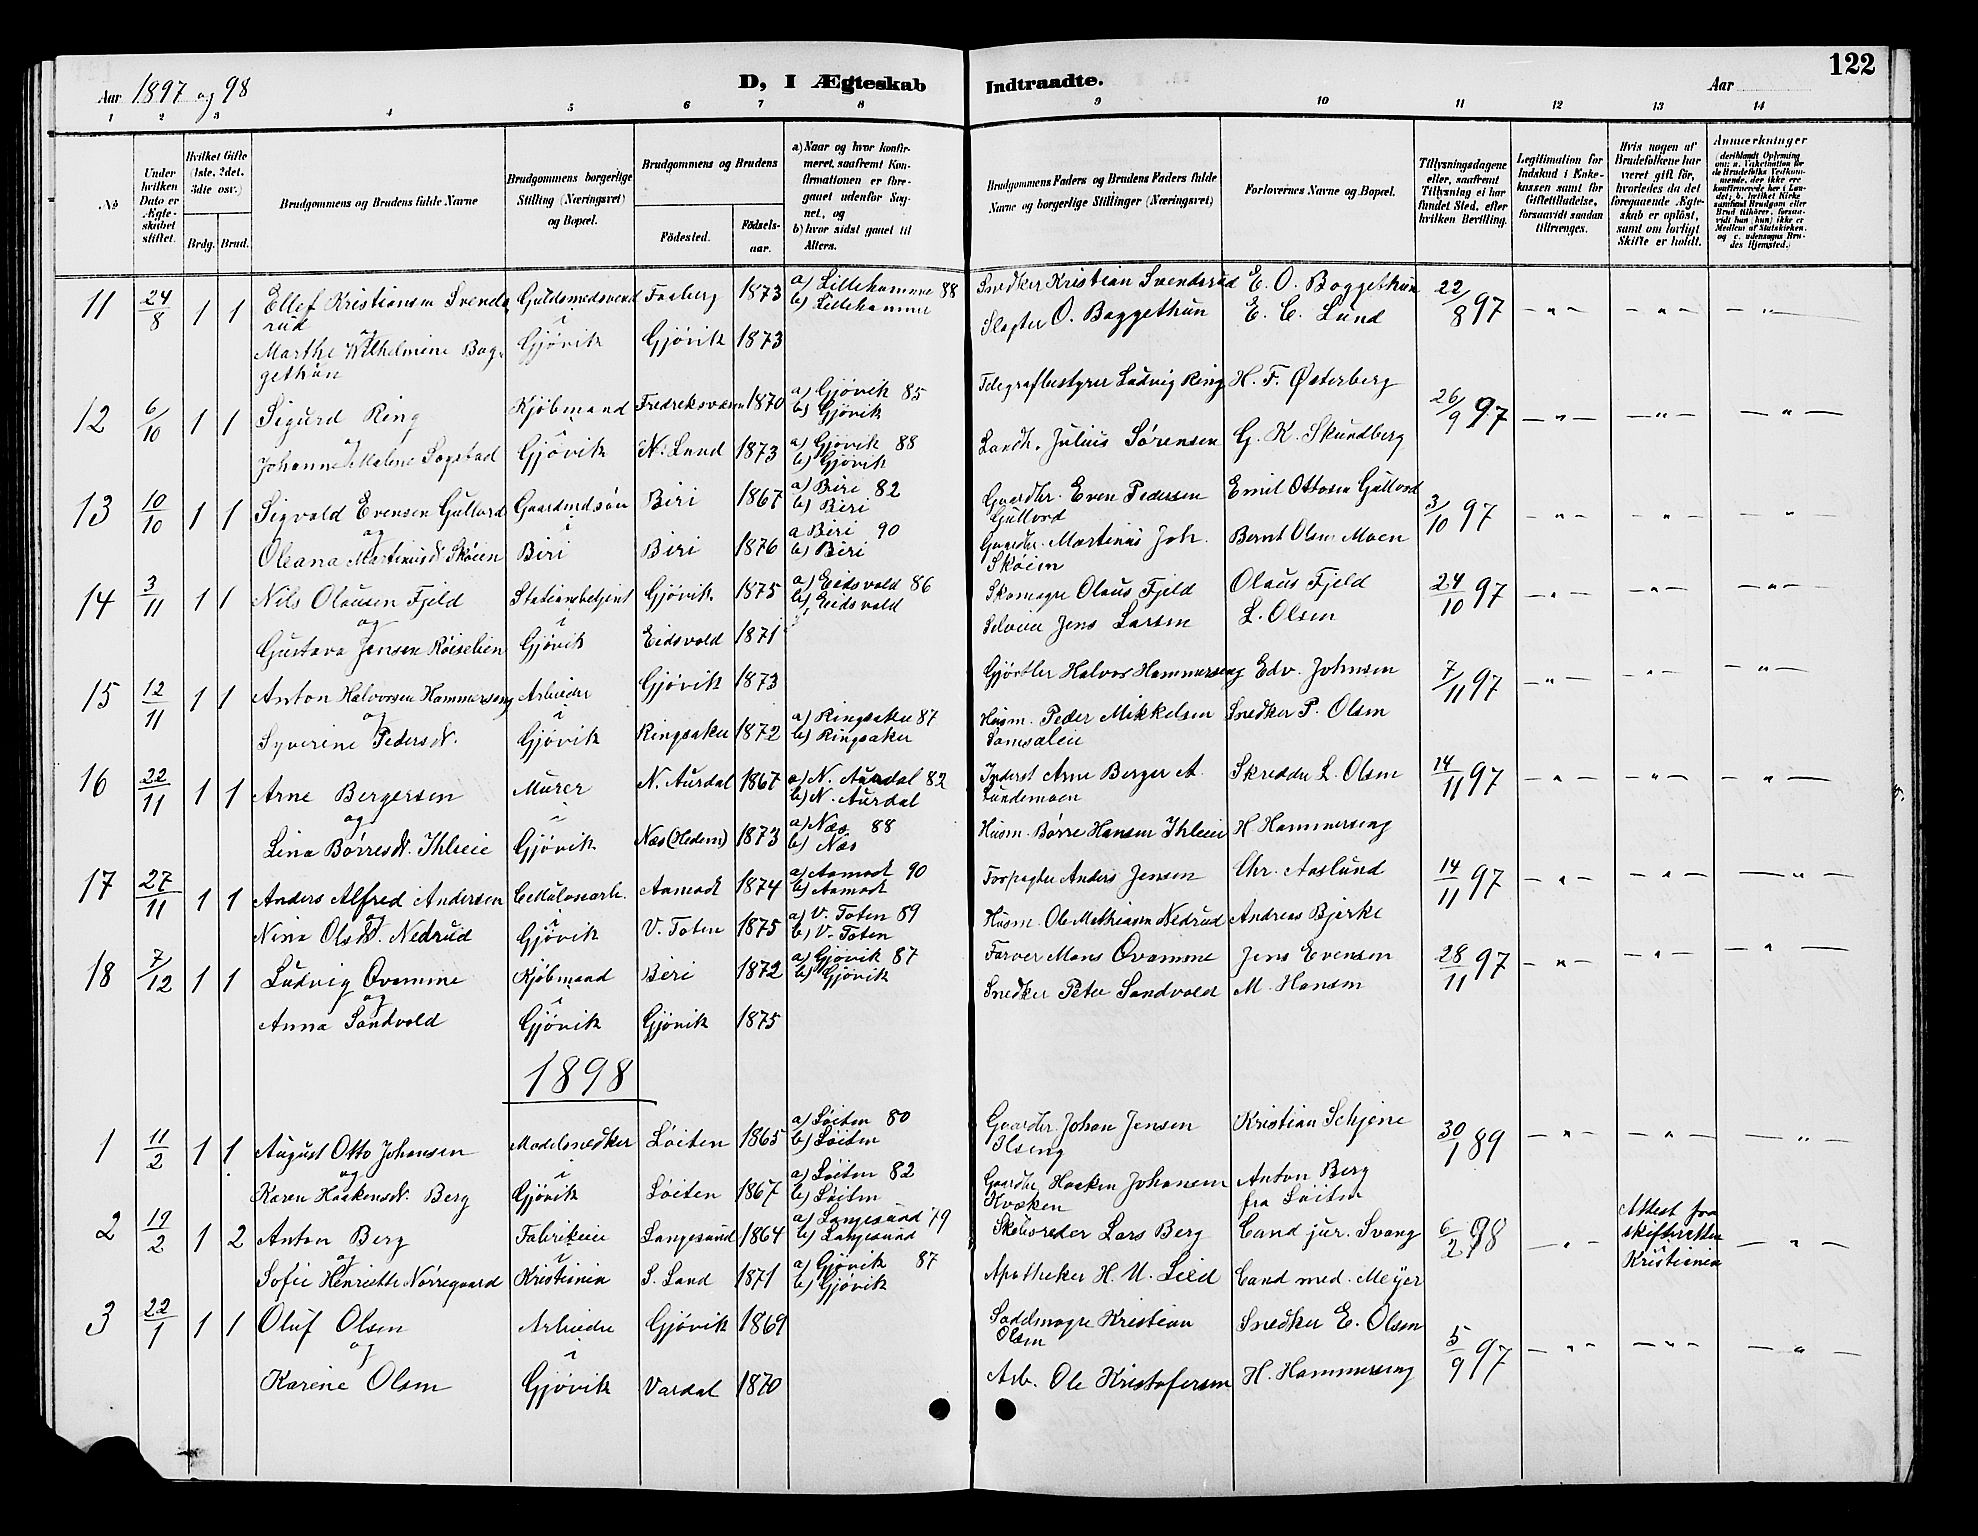 122
Aar 1897 og 98
D, I Ægteskab Indtraadte.
Aar
1 2 3 4 5 6 7 8 9 10 11 12 13 14
No
Under hvilken Dato er Ægteskabet stiftet.
Hvilket Gifte (1ste, 2det, 3die osv.)
Brdg. Brud.
Brudgommens og Brudens fulde Navne
Brudgommens borgerlige Stilling (Næringsvei) og Bopæl.
Brudgommens og Brudens
Fødested.
Fødselsaar.
a) Naar og hvor konfirmeret, saafremt Konfirmationen er foregaaet udenfor Sognet, og
b) hvor sidst gaaet til Alters.
Brudgommens Faders og Brudens Faders fulde Navne og borgerlige Stillinger (Næringsvei)
Forlovernes Navne og Bopæl.
Tillysningsdagene eller, saafremt Tillysning ei har fundet Sted, efter hvilken Bevilling.
Legitimation for Indskud i Enkekassen samt for Giftetilladelse, forsaavidt saadan tiltrænges.
Hvis nogen af Brudefolkene har været gift før, hvorledes da det foregaaende Ægteskab er opløst, samt om lovligt Skifte er holdt.
Anmærkninger
11 24/8 1 1 Ellef Kristiansen Svendsrud Guldsmedsvend Faaberg 1873 a) Lillehammer 88 b) Lillehammer Snedker Kristian Svendsrud E. O. Baggethun 22/8 97 — " — — " — — " —
og i
Marthe Wilhelmine Baggethun Gjøvik Gjøvik 1873 Slagter O. Baggethun E. C. Lund
12 6/10 1 1 Sigurd Ring Kjøbmand Fredriksværn 1870 a) Gjøvik 85 b) Gjøvik Telegrafbestyrer Ludvig Ring H. F. Østerberg 26/9 97 — " — — " — — " —
og i
Johanne Malene Sogstad Gjøvik N. Land 1873 a) Gjøvik 88 b) Gjøvik Landh. Julius Sørensen G. K. Skundberg
13 10/10 1 1 Sigvald Evensen Gullord Gaardmdsøn Biri 1867 a) Biri 82 b) Biri Gaardbr. Even Pedersen Gullord Emil Ottosen Gullord 3/10 97 — " — — " — — " —
og i
Oleana Martinusd. Skøien Biri Biri 1876 a Biri 90 b) Biri Gaardbr. Martinus Joh. Skøien Bernt Olsen Moen
14 3/11 1 1 Nils Olausen Fjeld Stationsbetjent Gjøvik 1875 a) Eidsvold 86 b) Eidsvold Skomager Olaus Fjeld Olaus Fjeld 24/10 97 — " — — " — — " —
og i
Gustava Jensen Røiselien Gjøvik Eidsvold 1871 Selveier Jens Larsen L. Olsen
15 12/11 1 1 Anton Halvorsen Hammerseng Arbeider Gjøvik 1873 Gjørtler Halvor Hammerseng Edv. Johnsen 7/11 97 — " — — " — — " —
og i
Syverine Pedersd. Gjøvik Ringsaker 1872 a) Ringsaker 87 b) Ringsaker Husm. Peder Mikkelsen Snedker P. Olsen
16 22/11 1 1 Arne Bergersen Murer N. Aurdal 1867 a) N. Aurdal 82 b) N. Aurdal Inderst Arne Berger A. Lundemoen Skredder L. Olsen 14/11 97 — " — — " — — " —
og i
Lina Børresd. Ihleie Gjøvik Næs (Hedem) 1873 a) Næs 88 b) Næs Husm. Børre Hansen Ihleie H Hammerseng
17 27/11 1 1 Anders Alfred Andersen Cellulosearb. Aamodt 1874 a) Aamodt 90 b) Aamodt Forpagter Anders Jensen Chr. Aaslund 14/11 97 — " — — " — — " —
og i
Nina Olsd. Nedrud Gjøvik V. Toten 1875 a) V. Toten 89 b) V. Toten Husm. Ole Mathiasen Nedrud Andreas Bjerke
18 7/12 1 1 Ludvig Qvamme Kjøbmand Biri 1872 a) Gjøvik 87 b) Gjøvik Farver Mons Qvamme Jens Evensen 28/11 97 — " — — " — — " —
og i
Anna Sandvold Gjøvik Gjøvik 1875 Snedker Peter Sandvold M. Hansen
1898
1 11/2 1 1 August Otto Johansen Modelsnedker Løiten 1865 a) Løiten 80 b) Løiten Gaardbr. Johan Jensen Ilseng Kristian Schjene 30/1 89 — " — — " — — " —
og i
Karen Haakensd. Berg Gjøvik Løiten 1867 a) Løiten 82 b) Løiten Gaardbr Haaken Johansen Kvæken Anton Berg fra Løiten
2 19/2 1 2 Anton Berg Fabrikeier Langesund 1864 a) Langesund 79 b) Langesund Skibsreder Lars Berg Cand jur. Svang 6/2 98 — " — Attest fra skifteretten Kristiania — " —
og i
Sofie Henriette Nørregaard Kristiania S. Land 1871 a) Gjøvik 87 b) Gjøvik Apotheker H. U. Lied Cand med. Meyer
3 22/1 1 1 Oluf Olsen Arbeider Gjøvik 1869 Sadelmager Kristian Olsen Snedker E. Olsen 5/9 97 — " — — " — — " —
og i
Karine Olsen Gjøvik Vardal 1870 Arb. Ole Kristofersen H. Hammerseng